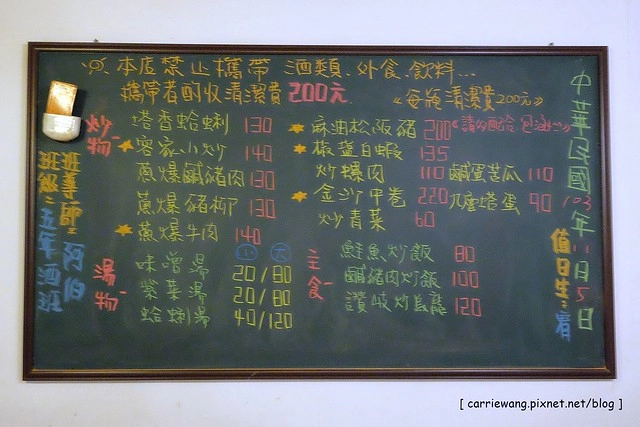 ※本店禁止攜帶 酒類、外食、飲料...
攜帶者酌收清潔費200元
《每瓶清潔費200元》
炒物-
塔香蛤蜊 130
★客家小炒 140
蔥爆鹹豬肉 130
蔥爆豬柳 130
★蔥爆牛肉 140
★麻油松阪豬 200
★椒鹽白蝦 135
炒螺肉 110
★金沙中卷 220
炒青菜 60
鹹蛋苦瓜 110
九層塔蛋 90
湯物-
小 大
味噌湯 20/80
紫菜湯 20/80
蛤蜊湯 40/120
主食-
鮭魚炒飯 80
鹹豬肉炒飯 100
讚岐炒烏龍 120
中華民國103年11月5日
值日生:
班導師:阿伯
班級:五年酒班
[ carriewang.pixnet.net/blog ]